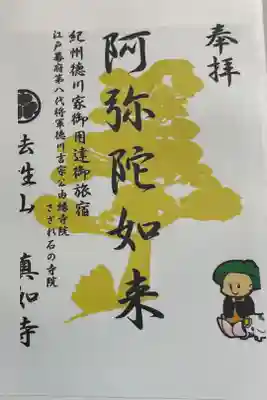 奉拝
阿弥陀如来
紀州徳川家御用達御旅宿
江戸幕府第八代将軍徳川吉宗公由縁寺院
さざれ石の寺院
去生山 真如寺